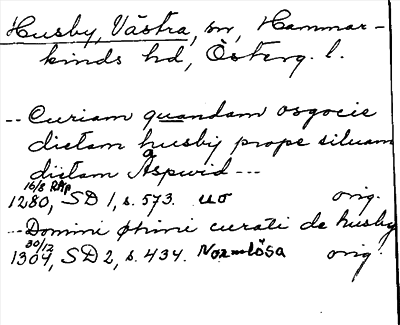 Husby, Västra, sn, Hammar-
kinds hd, Österg. l.
-- Curiam quandam osgocie
dictam husby prope siluam
dictam Aspwid ---
16/8 RAp
1280, SD 1, s. 573. uo orig.
-- Domini curati de husby
30/12
1304, SD 2, s. 434. Normlösa orig.